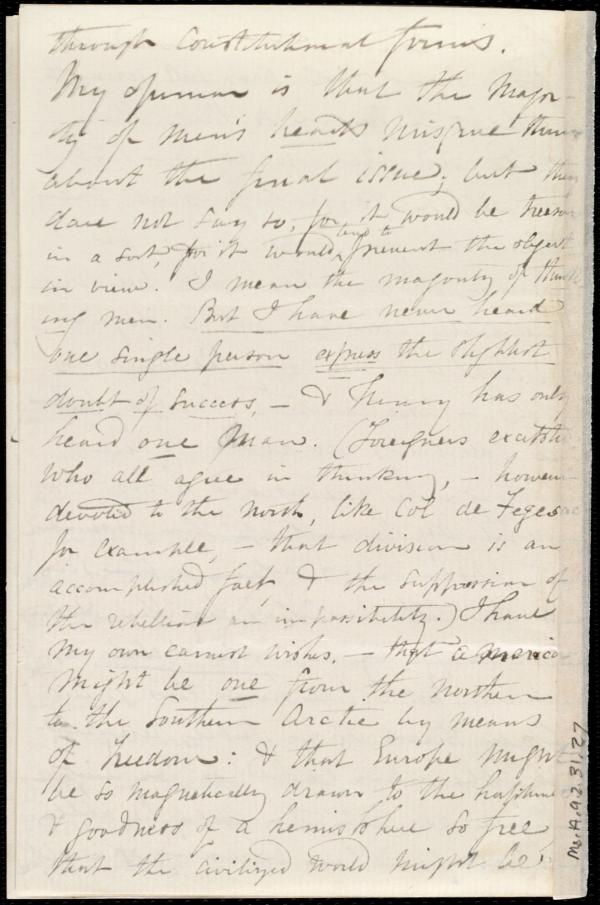 through Constitutional forms.
My opinion is that the Major-
ity of men's hearts misgive them
about the final issue; but they
dare not say so, for it would be treason
in a sort, for it would tend to prevent the object
in view. I mean the majority of think-
ing men. But I have never heard
one single person express the slightest
doubt of success, — & Henry has only
heard one man. (Foreigners excepted
who all agree in thinking, — however
devoted to the North, like Col de Fegesac
for example, — that division is an
accomplished fact, & the suppression of
the rebellion an impossibility.) I have
my own earnest wishes, — that America
might be one from the northern
to the Southern Arctic by means
of freedom: & that Europe might
be so magnetically drawn to the happiness
& goodness of a hemisphere so free
that the civilized world might be
Ms.A.9.2.31.27